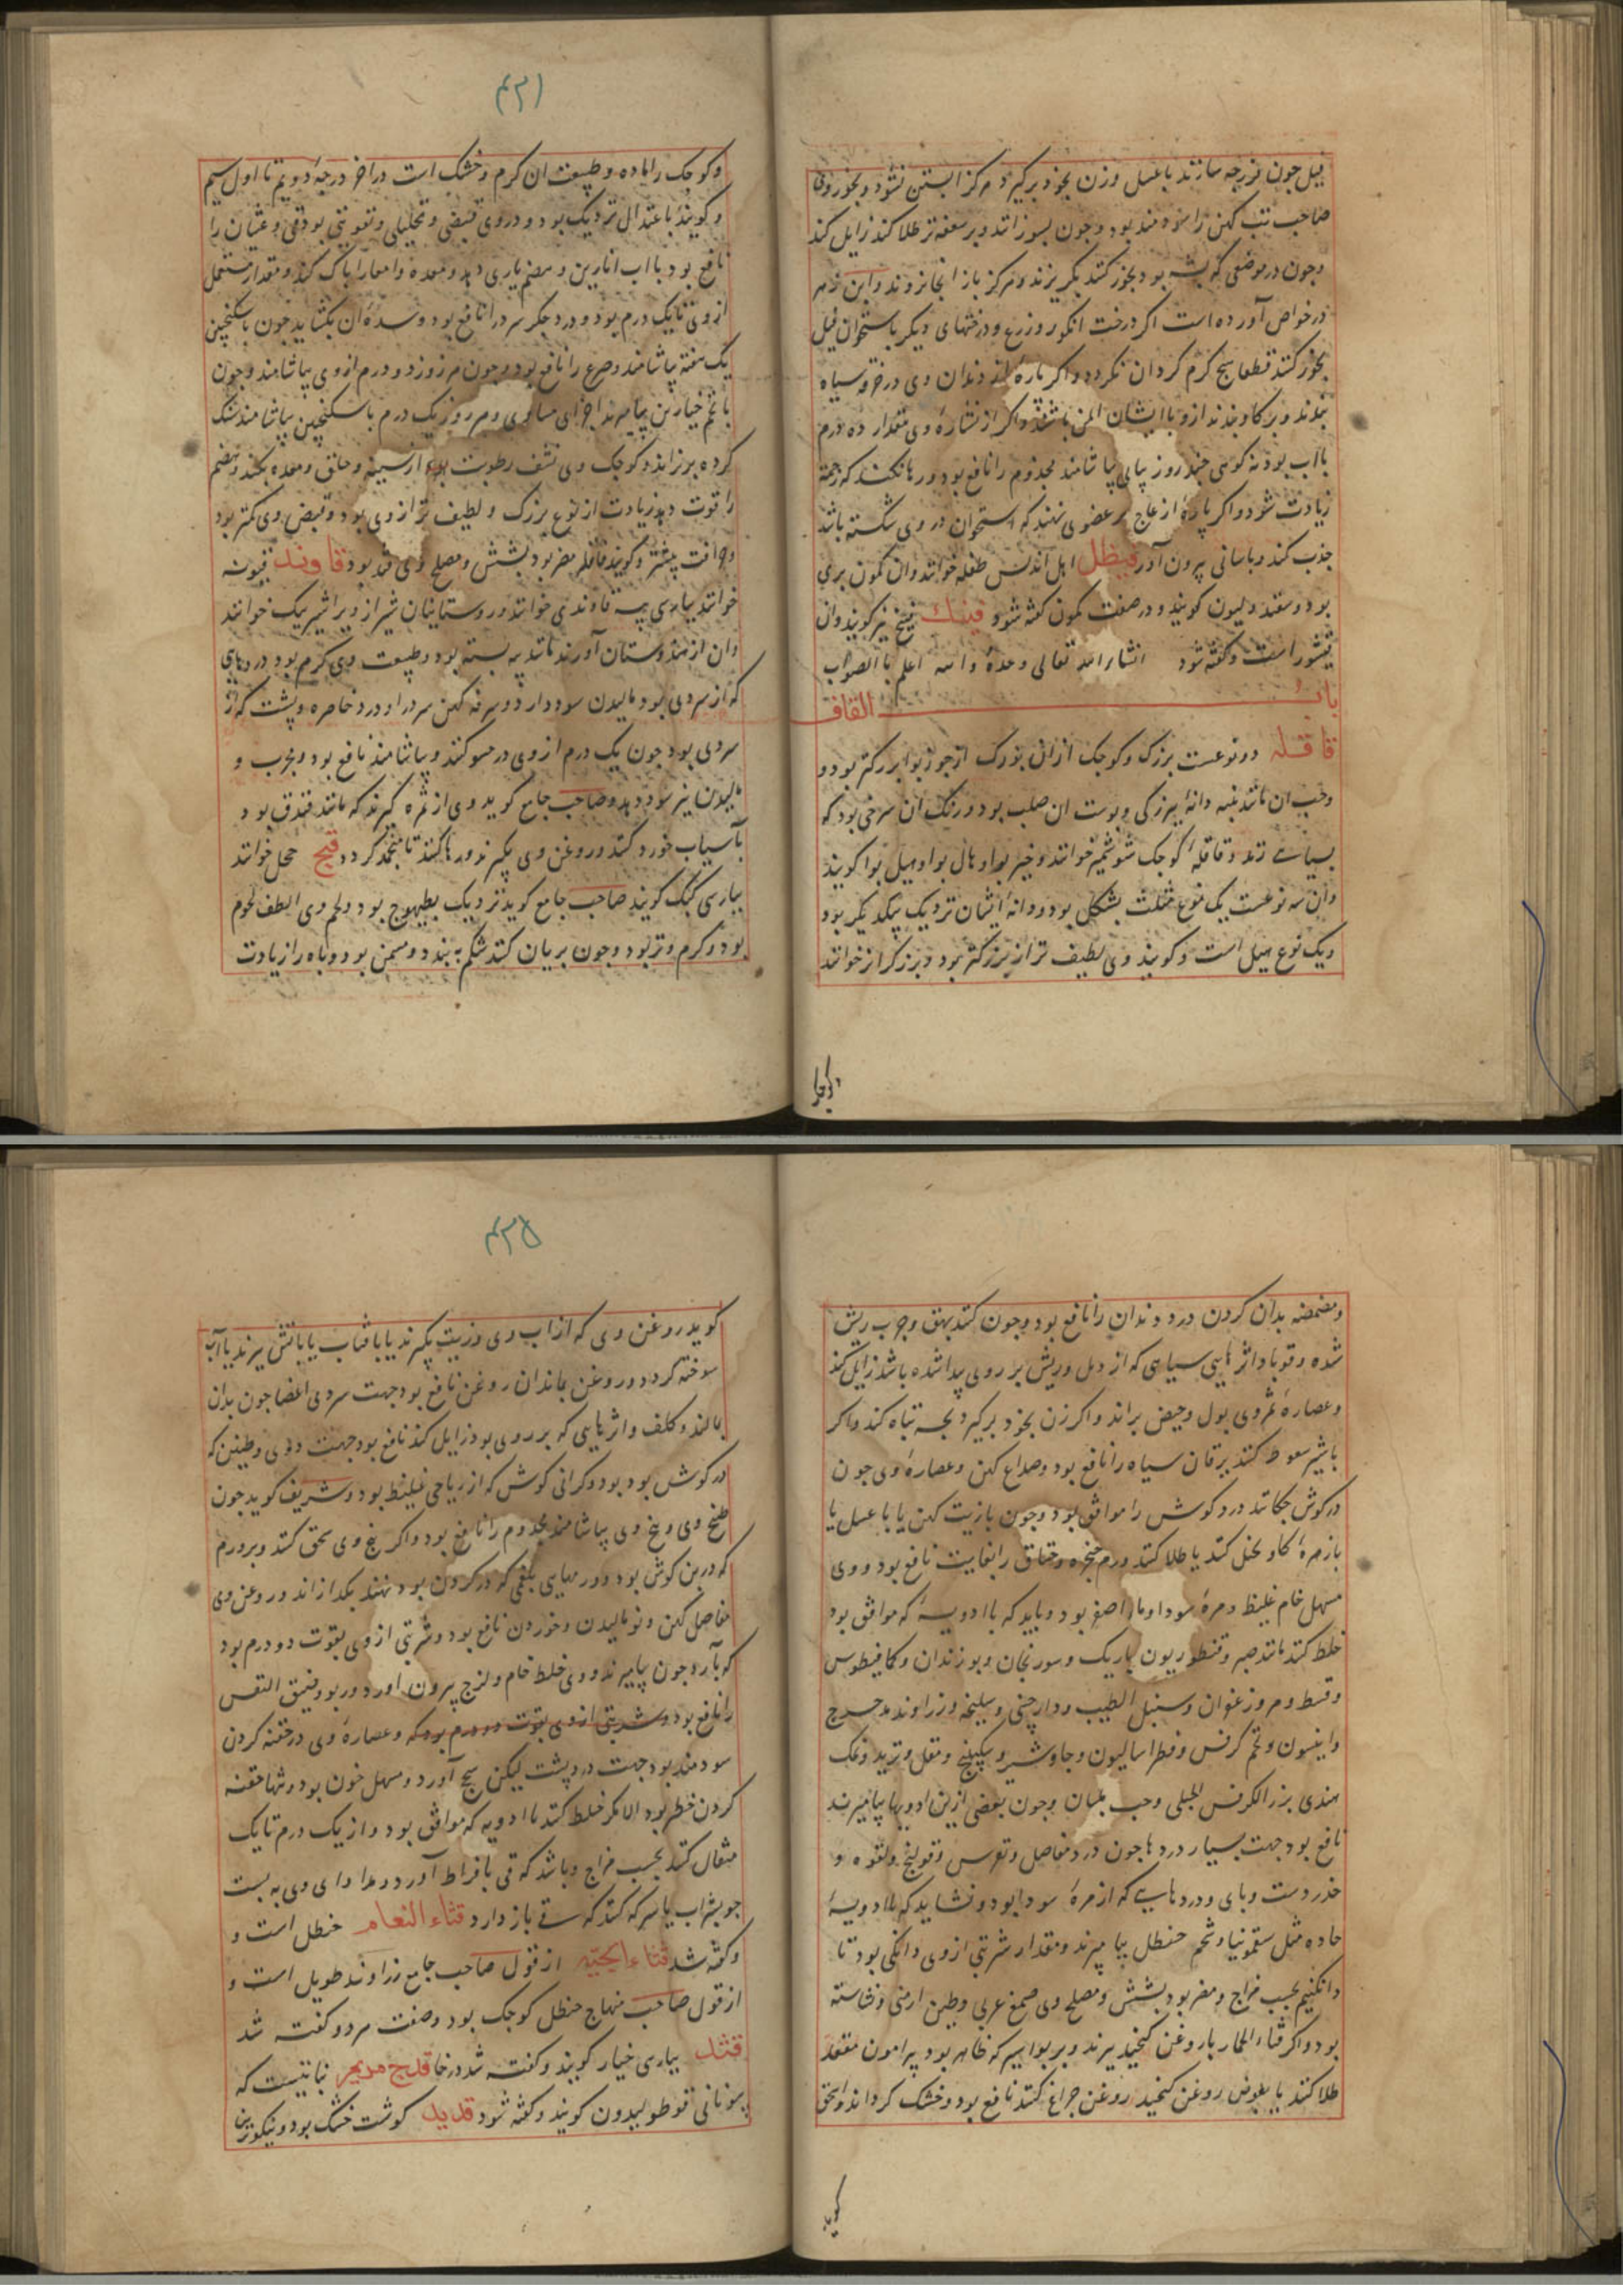 فیل جون فرزجه سازند باعسل وزن بخود برکیرد هرکز ابستن نشود وبخور وی
صاحب تب کهن را سودمند بود وجون بسوزانند وبر سعفه تر طلا کند زایل کند
وجون در موضعی که پشه بود بخور کنند بکریزند وهرکز باز انجا نروند وابن زهر
در خواص آورده است اکر درخت انکور وزرع ودرختهای دیکر باستخوان فیل
بخور کنند قطعا هیج کرم کرد ان نکردد واکر پارهٔ از دندان وی در خرقه سیاه
بندند وبر کاو بندند از وبا ایشان ایمن باشند واکر از نشارهٔ وی مقدار ده درم
بااب بودنه کوهی جند روز پیاپی پیاشامند مجذوم را نافع بود ورها نکند که زحمت
زیادت شود واکر پارهٔ از عاج بر عضوی نهند که استخوان در وی شکسته باشد
جذب کند وباسانی بیرون آورد فیظل اهل اندلس طفله خوانند وان کمون بری
بود وسقندولیون کویند ودر صفت کمون کفته شود فینک فینج نیز کویند وان
قیشور است وکفته شود انشاء الله تعالی وحدهٔ والله اعلم باالصواب
باب القاف
قاقله دو نوعست بزرک وکوجک ازانی بزرک از جوزبوا بزرکتر بود و
وحب ان مانند پنبه دانهٔ ببزرکی وپوست ان صلب بود ورنک ان سرخی بود که
بسیاهی زند وقاقلهٔ کوجک شوشمیر خوانند وخیربوا وهال بوا وهیل بوا کویند
وان سه نوعست یک نوع مثلث بشکل بود ودانهٔ ایشان نزدیک بیکدیکر بود
ویک نوع هیل است وکویند وی لطیف تر از بزرکتر بود وبزرک را نر خوانند
۴۲۱
وکوجک را ماده وطبیعت ان کرم وخشک است در اخر درجهٔ دویم تا اول سیم
وکویند باعتدال نزدیک بود ودر وی قبضی وتحلیلی وتقویتی بود وقی وغثیان را
نافع بود با اب انارین وهضم یاری دهد ومعده وامعا را پاک کند ومقدار مستعمل
از وی تا یک درم بود ودرد جکر سرد را نافع بود وسدهٔ ان بکشاید جون باسکنجبین
یک هفته پیاشامند وصرع را نافع بود وجون هر روز دو درم از وی پیاشامند وجون
با تخم خیارین پیامیزند اجزای مساوی وهر روز یک درم با سکنجبین پیاشامند سنک
کرده بریزاند وکوجک وی نشف رطوبت بود از سینه وحلق ومعده بکند وهضم
را قوت دهد زیادت از نوع بزرک ولطیف تر از وی بود وقبض وی کمتر بود
وحرافت بیشتر وکویند قاقله مضر بود بشش ومصلح وی قند بود قاوند قیونه
خوانند بپارسی پیه قاوندی خوانند وروستائیان شیراز ویرا شیریک خوانند
وان از هندوستان آورند مانند پیه بسته بود وطبیعت وی کرم بود دردهای
که از سردی بود مالیدن سود دارد وسرفه کهن سرد را ودرد خاصره وپشت که از
سردی بود جون یک درم از وی در حسو کنند وپیاشامند نافع بود وبجرب و
مالیدن نیز سود دهد وصاحب جامع کوید وی از ثمره کیرند که مانند فندق بود
بآسیاب خورد کنند وروغن وی بکیرند ورها کنند تا منجمد کردد قبج حجل خوانند
بپارسی کبک کویند صاحب جامع کوید نزدیک بطیهوج بود ولحم وی الطف لحوم
بود وکرم وتر بود وجون بریان کنند شکم به بندد ومسمن بود وباه را زیادت
ومضمضه بدان کردن درد دندان را نافع بود وجون کنند بهق وجرب ریش
شده وقوبا واثرهایی سیاهی که از دمل وریش بر روی پیدا شده باشد زایل کند
وعصارهٔ ثمر وی بول وحیض براند واکر زن بخود برکیرد بچه تباه کند واکر
با شیر سعوط کنند یرقان سیاه را نافع بود وصداع کهن وعصارهٔ وی جون
در کوش جکانند درد کوش را موافق بود وجون بازیت کهن یا با عسل یا
با زهرهٔ کاو بخل کنند یا طلا کنند ورم حنجره وخناق را بغایت نافع بود ووی
مسهل خام غلیظ ومرهٔ سودا وماء اصفر بود وباید که با ادویهٔ که موافق بود
خلط کنند مانند صبر وقنطوریون باریک وسورنجان وبوزندان وکمافیطوس
وقسط ومر وزعفران وسنبل الطیب ودارجینی وسلیخه وزراوند مدحرج
وانیسون وتخم کرفس وفطراسالیون وجاوشیر وسکبینج ومقل وتربد ونمک
هندی بزر الکرفس الجبلی وحب بلسان وجون بعضی ازین ادویها پیامیزند
نافع بود جهت بسیار دردها جون درد مفاصل ونقرس وقولنج ولقوه و
خدر دست وپای ودردهایی که از مرهٔ سودا بود ونشاید که بااادویهٔ
حاده مثل سقمونیا وشحم حنظل پیامیزند ومقدار شربتی از وی دانکی بود تا
دانکنیم بحسب مزاج ومضر بود بشش ومصلح وی صمغ عربی وطین ارمنی ونشاسته
بود واکر قثاء الحمار باروغن کنجید بپزند وبر بواسیر که ظاهر بود پیرامون مقعد
طلا کنند یا بعوض روغن کنجید روغن جراغ کنند نافع بود وخشک کرداند
۴۲۵
کوید روغن وی که از اب وی وزیت بکیرند یا بافتاب یا باتش بپزند تا آب
سوخته کردد وروغن بماند ان روغن نافع بود جهت سردی اعضا جون بدان
بمالند وکلف واثرهایی که بر روی بود زایل کند نافع بود جهت دوی وطنین که
در کوش بود بود وکرانی کوش که از ریاحی غلیظ بود وشریف کوید جون
طبخ وی وبیخ وی پیاشامند مجذوم را نافع بود واکر بیخ وی سحق کنند وبر ورم
که در بن کوش بود وورمهایی بلغمی که در کردن بود نهند بکدازاند وروغن وی
مفاصل کهن ونو مالیدن وخوردن نافع بود وشربتی از وی بقوت دو درم بود
که بآرد جون پیامیزند ووی خلط خام ولزج بیرون آورد وربو وضیق النفس
را نافع بود وشربتی از وی بقوت دو درم بود که وعصارهٔ وی در حقنه کردن
سودمند بود جهت درد پشت لیکن سحج آورد ومسهل خون بود وتنها حقنه
کردن خطر بود الا مکر خلط کنند باادویه که موافق بود واز یک درم تا یک
مثقال کنند بحسب مزاج وباشد که قی بافراط آورد ومداوای وی به بست
جو بشراب یا سرکه کنند که قی باز دارد قثاء النعام حنظل است و
وکفته شد قثاء الحیته از قول صاحب جامع زراوند طویل است و
از قول صاحب منهاج حنظل کوجک بود وصفت هر دو کفته شد
قثد بپارسی خیار کویند وکفته شد در خا قدح مریم نباتیست که
بیونانی قوطولیدون کویند وکفته شود قدید کوشت خشک بود ونیکوترین